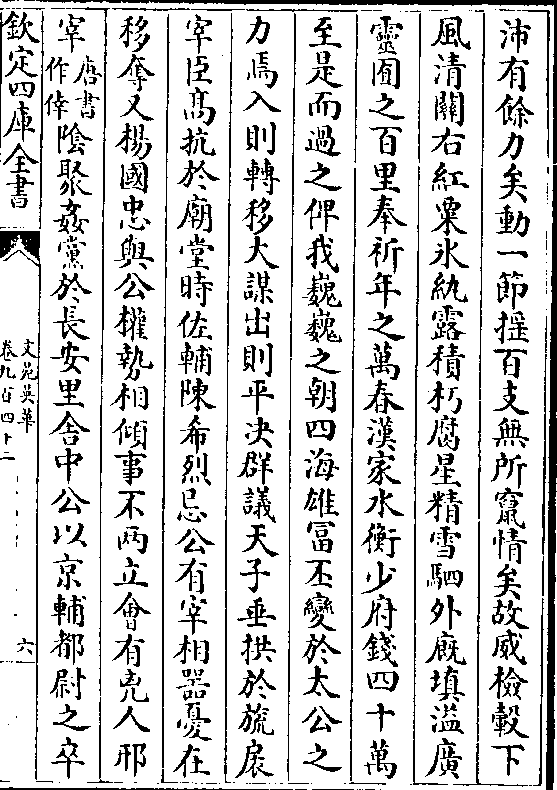 沛有餘力矣動一節揺百支無所竄情矣故威檢轂下
風清關右紅粟氷紈露積朽腐星精雪駟外廐填溢廣
靈囿之百里奉祈年之萬春漢家水衡少府錢四十萬
至是而過之俾我巍巍之朝四海雄冨丕變於太公之
力焉入則轉移大謀出則平決群議天子垂拱於旒扆
宰臣髙抗於廟堂時佐輔陳希烈忌公有宰相器憂在
移奪又楊國忠與公權勢相傾事不两立會有兇人邢
宰唐書作倖陰聚姦黨於長安里舍中公以京輔都尉之卒
欽定四庫全書
文苑英華
卷九百四十二
六